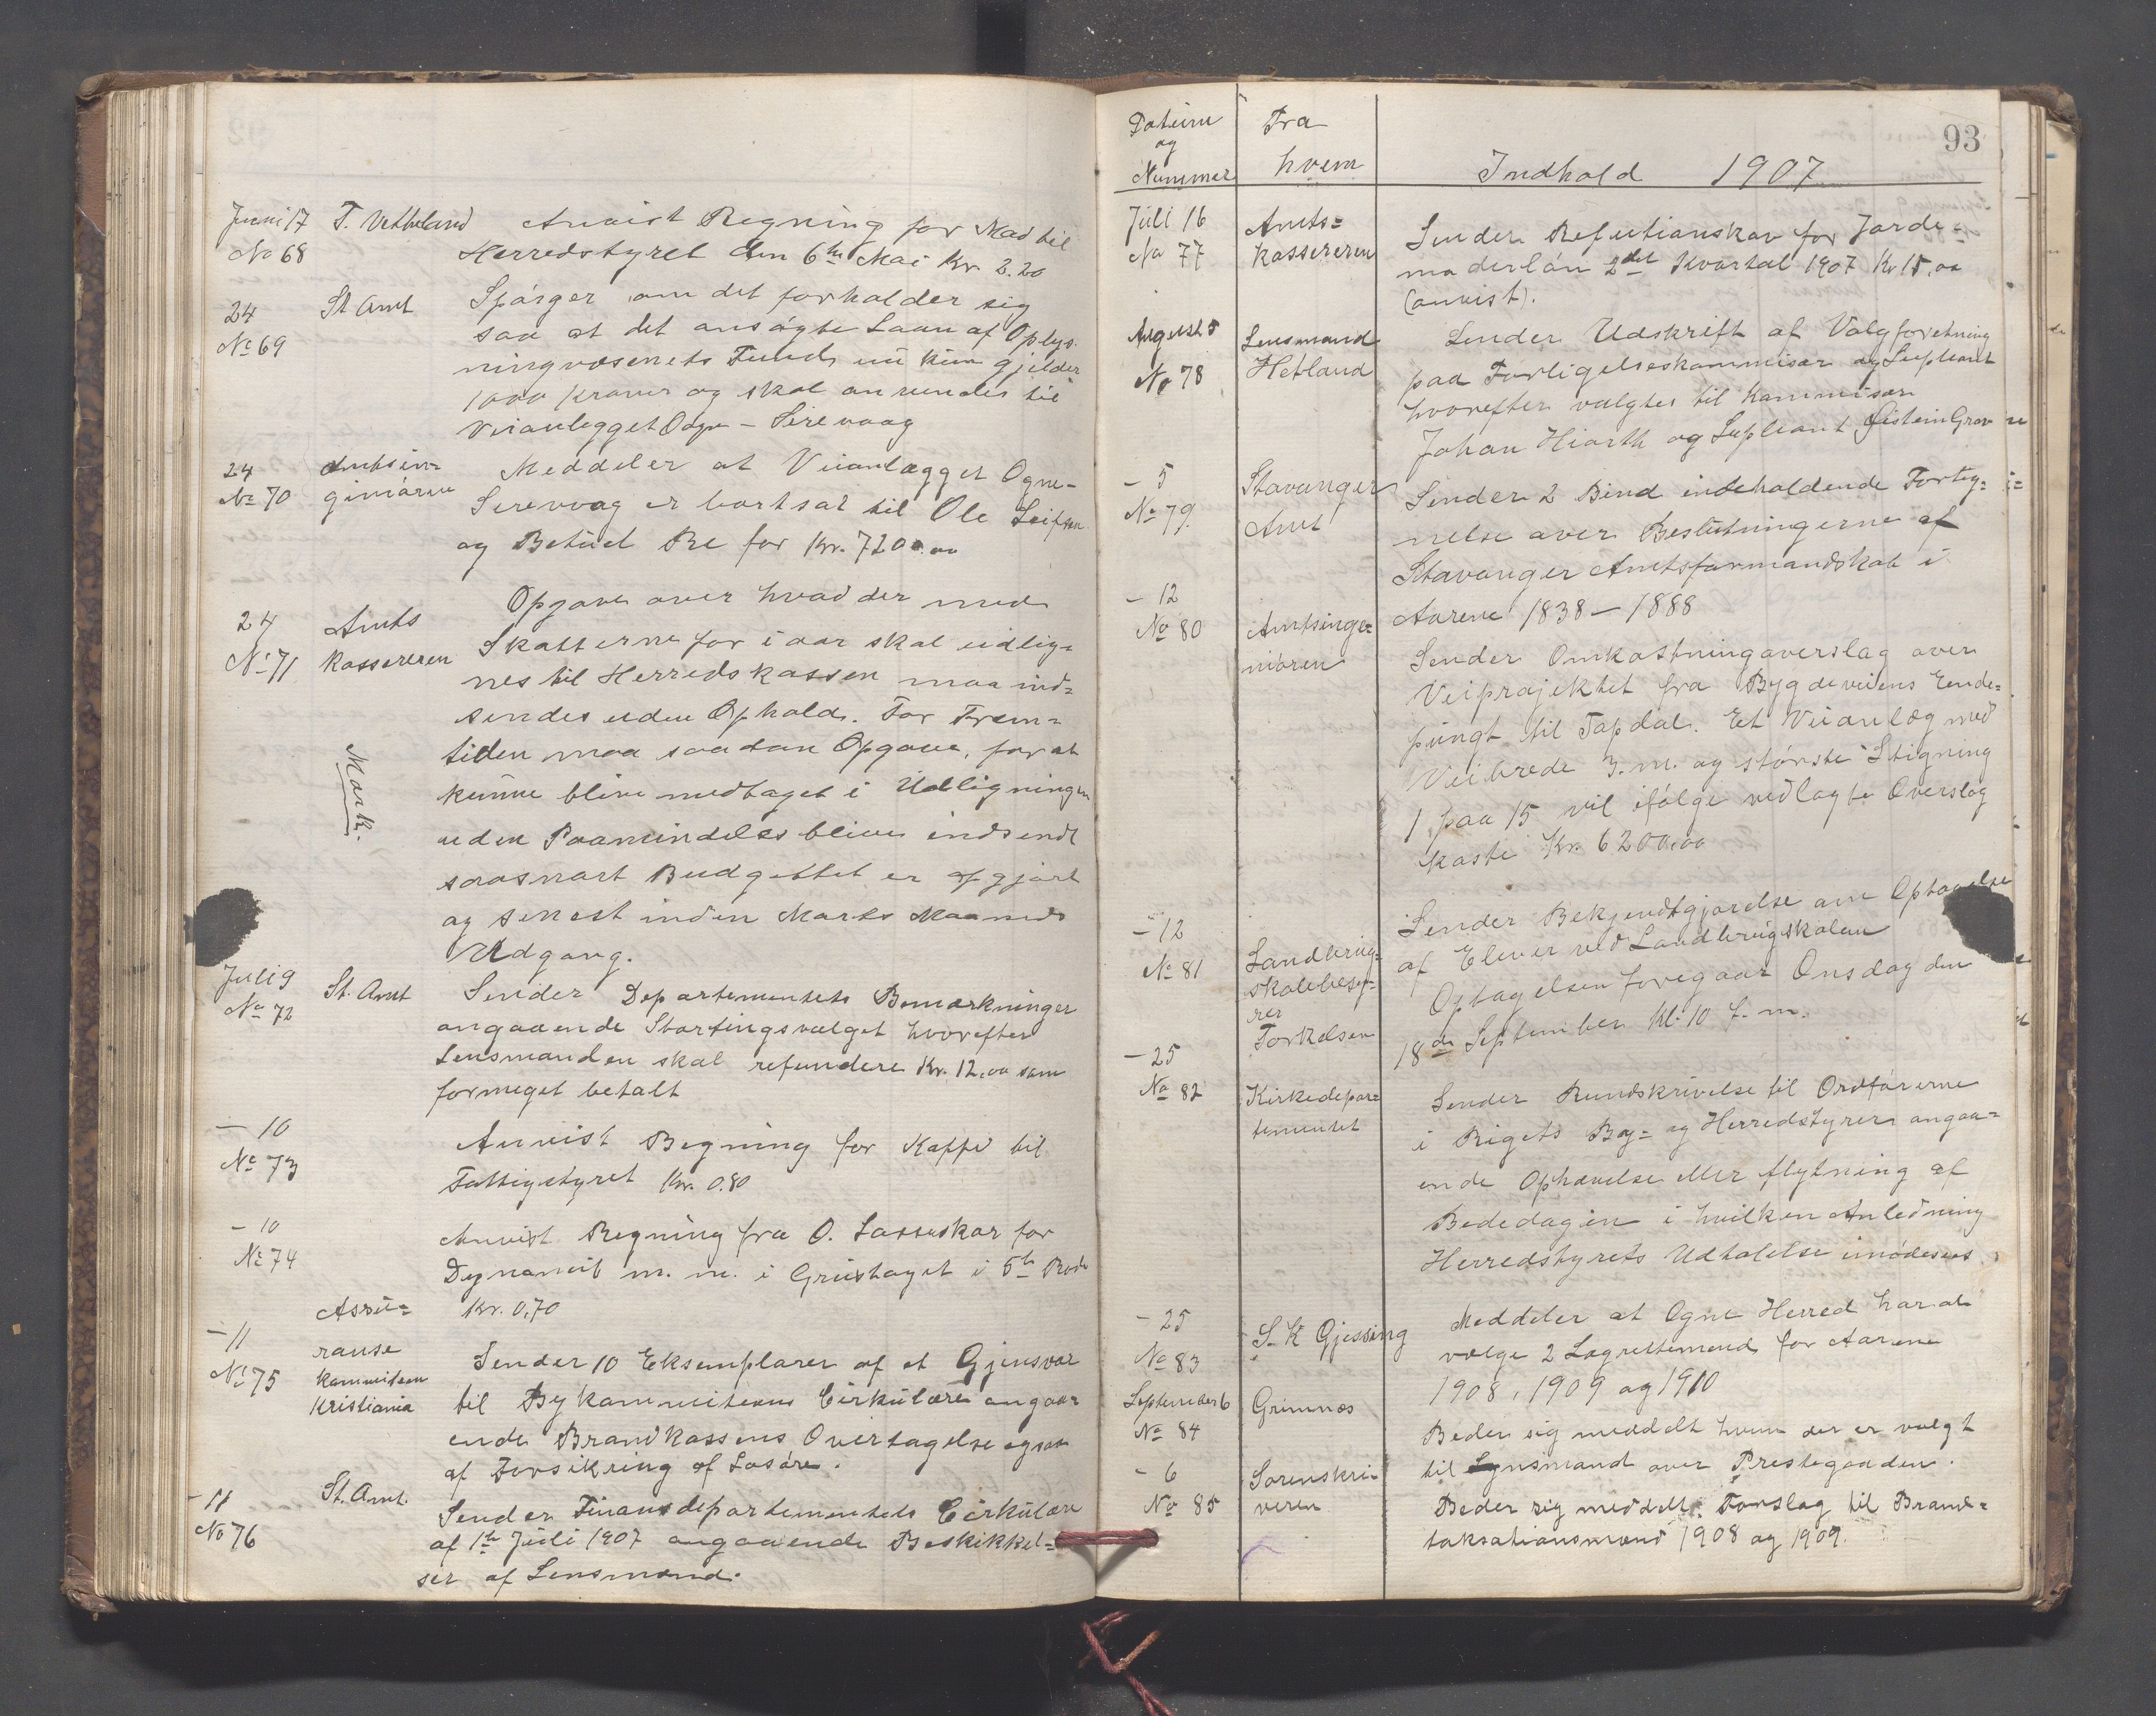 Juni 17 T. Vetteland Anvist Regning for Mad til
No 68 Herredstyret den 6te Mai Kr. 2.20
24 St Amt Spörger om det forholder sig
No 69 saa at det ansögte Laan af Oplys
ningvæsenets Fund nu kun gjelder
1000 Kroner og skal anvendes til
Veianlegget Ogn - Sirevaag
24 Amtsin= Meddeler at Veianlægget Ogne-
No 70 giniören Sirevaag er bortsat til Ole Leifsen
og Betuel Re for Kr. 7200.00
Opgave over hvad der med
24 Amts Skatterne for i aar skal udlig=
No 71 kassereren nes til Herredskassen maa ind=
sendes uden Ophold. For Frem=
tiden maa saadan Opgave, for at
Mærk. kunne blive medtaget i Udligningen
uden Paamindelse blive indsendt
saasnart Budgettet er opgjort
og senest inden Marts Maaneds
Udgang.
Juli 9 St. Amt Sender Departementets Bemærkninger
No 72 angaaende Stortingsvalget hvorefter
Lensmanden skal refundere Kr. 12.00 som
formeget betalt
- 10 Anvist Regning for Kaffe til
No 73 Fattigstyret Kr. 0.80
- 10 Anvist Regning fra O. Lassuskar for
No 74 Dynamit m. m. i Grustaget i 5te Rode
Assu= Kr. 0,70
- 11 ranse
No 75 kommiteen Sender 10 Eksemplarer af et Gjensvar
Kristiania til Bykommiteens Cirkulære angaa=
ende Brandkassens Overtagelse ogsaa
af Forsikring af Lösöre.
- 11 St. Amt. Sender Finansdepartementets Cirkulære
No 76 af 1te Juli 1907 angaaende Beskikkel=
ser af Lensmænd.
93
Datum Fra
og
Nummer hvem Indhold 1907
Juli 16 Amts= Sender Refutianskav for Jorde=
No 77 kassereren moderlån 2det Kvartal 1907 Kr 15,00
(anvist).
August 5 Lensmand Sender Udskrift af Valgforretning
No 78 Hetland paa Forligelseskommisær og Supleant
hvorefter valgtes til Kommisær
Johan Hiorth og Supleant Øistein Gravne
- 5 Stavanger Sender 2 Bind indeholdende Forteg=
No 79. Amt nelse over Beslutningerne af
Stavanger Amtsformandskab i
- 12 Aarene 1838 - 1888
No 80 Amtsinge= Sender Omkostningoverslag over
niören Veiprojektet fra Bygdeveiens Ende=
pungt til Tapdal. Et Veianlæg med
Veibrede 3. m. og störste Stigning
1 paa 15 vil ifölge vedlagte Overslag
koste Kr. 6200.00
- 12 Sender Bekjendtgjørelse om Optagelse
No 81 Landbrug= af Elever ved Landbrugskolen
skolebesty= Optagelsen foregaar Onsdag den
rer 18de September Kl. 10 F. m.
Torkelsen
- 25
No 82 Kirkedepar= Sender Rundskrivelse til Ordförerne
tementet i Rigets By= og Herredstyrer angaa=
ende Ophævelse eller flytning af
Bededagen i hvilken Anledning
Herredstyrets Udtalelse imödesees
- 25 S. K Gjessing Meddeler at Ogne Herred har at
No 83 vælge 2 Lagrettemænd for Aarene
1908, 1909 og 1910
September 6 Grimnæs Beder sig meddelt hvem der er valgt
No 84 til Synsmand over Prestegaaden.
- 6 Sorenskri= Beder sig meddelt Forslag til Brand=
No 85 veren taksationsmænd 1908 og 1909.